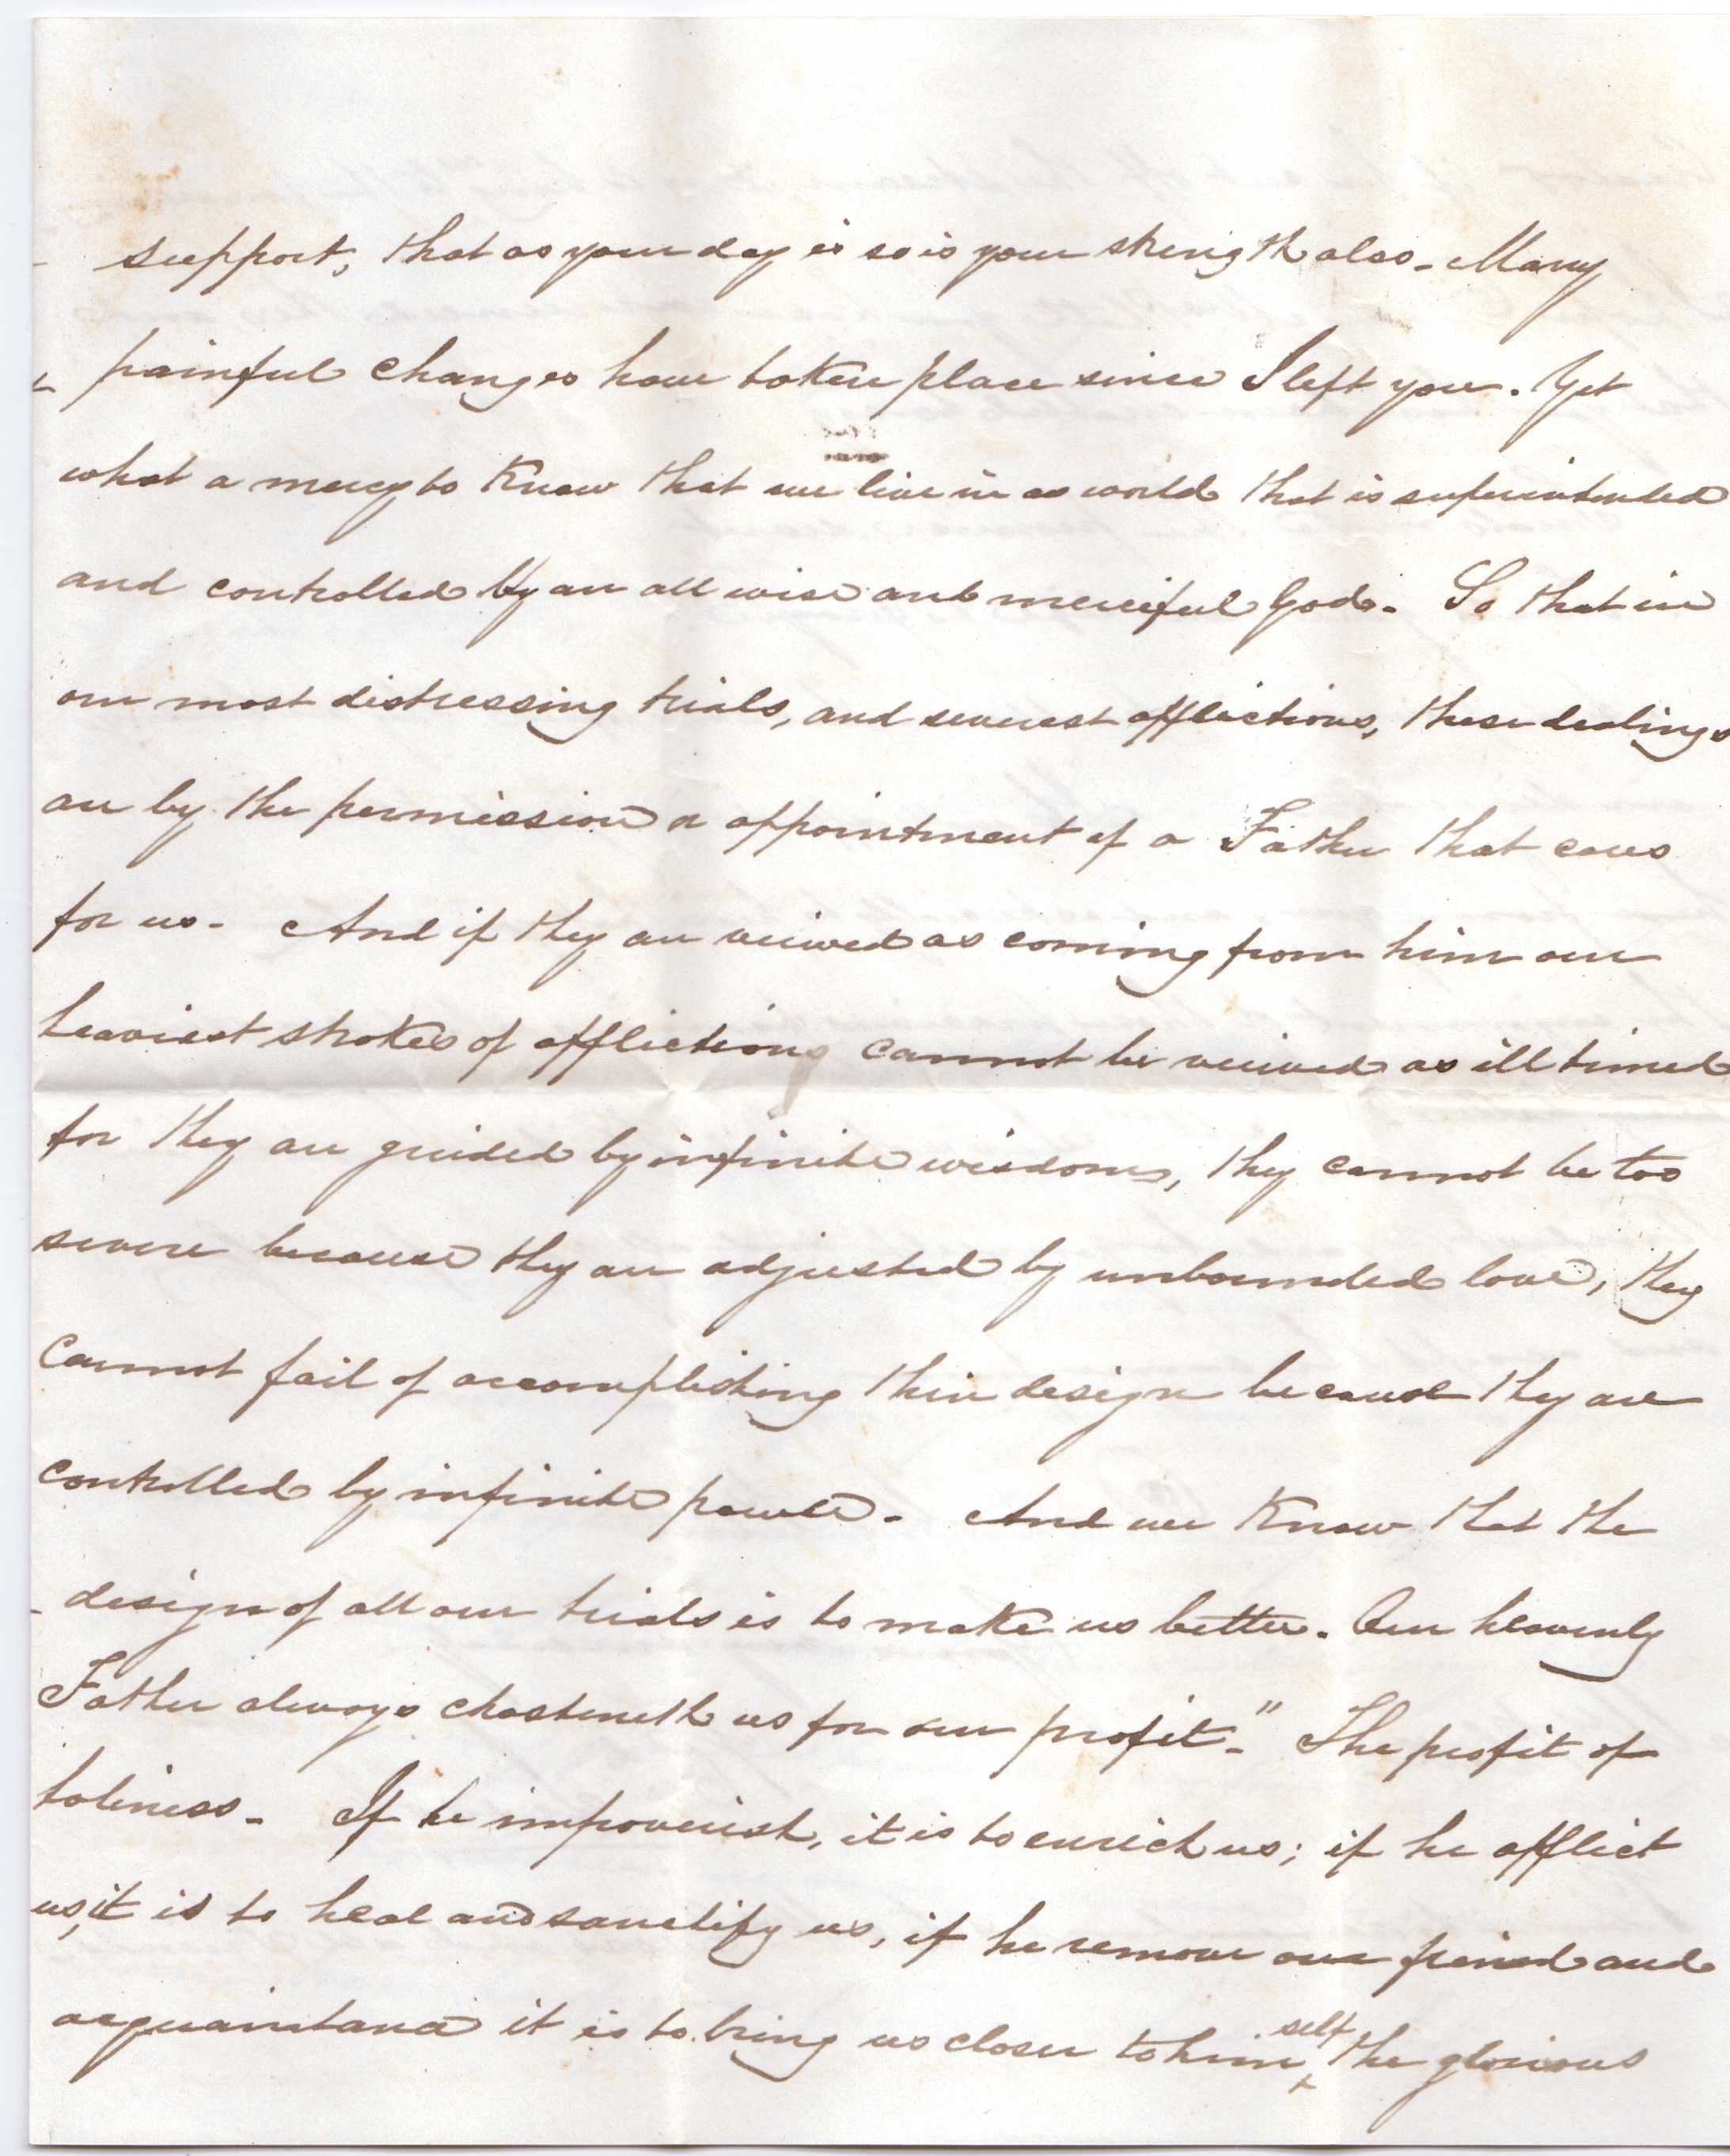 support, that as your day is so is your strength also - Many
painful changes have taken place since I left you. Yet
what a mercy to know that we live in a world that is superintended
and controlled by an all wise and merciful God. So that in
our most distressing trials, and severest afflictions, these dealings
are by the permission or appointment of a Father that cares
for us - And if they are veiwed as coming from him our
heaviest strokes of afflictions cannot be veiwed as ill timed
for they are guided by infinite wisdom, they cannot be too
severe because they are adjusted by unbounded love, they
cannot fail of accomplishing their design because they are
controlled by infinite power - And we know that the
design of all our trials is to make us better. Our heavenly
Father always chasteneth us for our profit -" The profit of
holiness - If he impoverish, it is to enrich us; if he afflict
us, it is to heal and sanctify us, if he remove our friend and
acquaintance it is to bring us closer to himself, the glorious